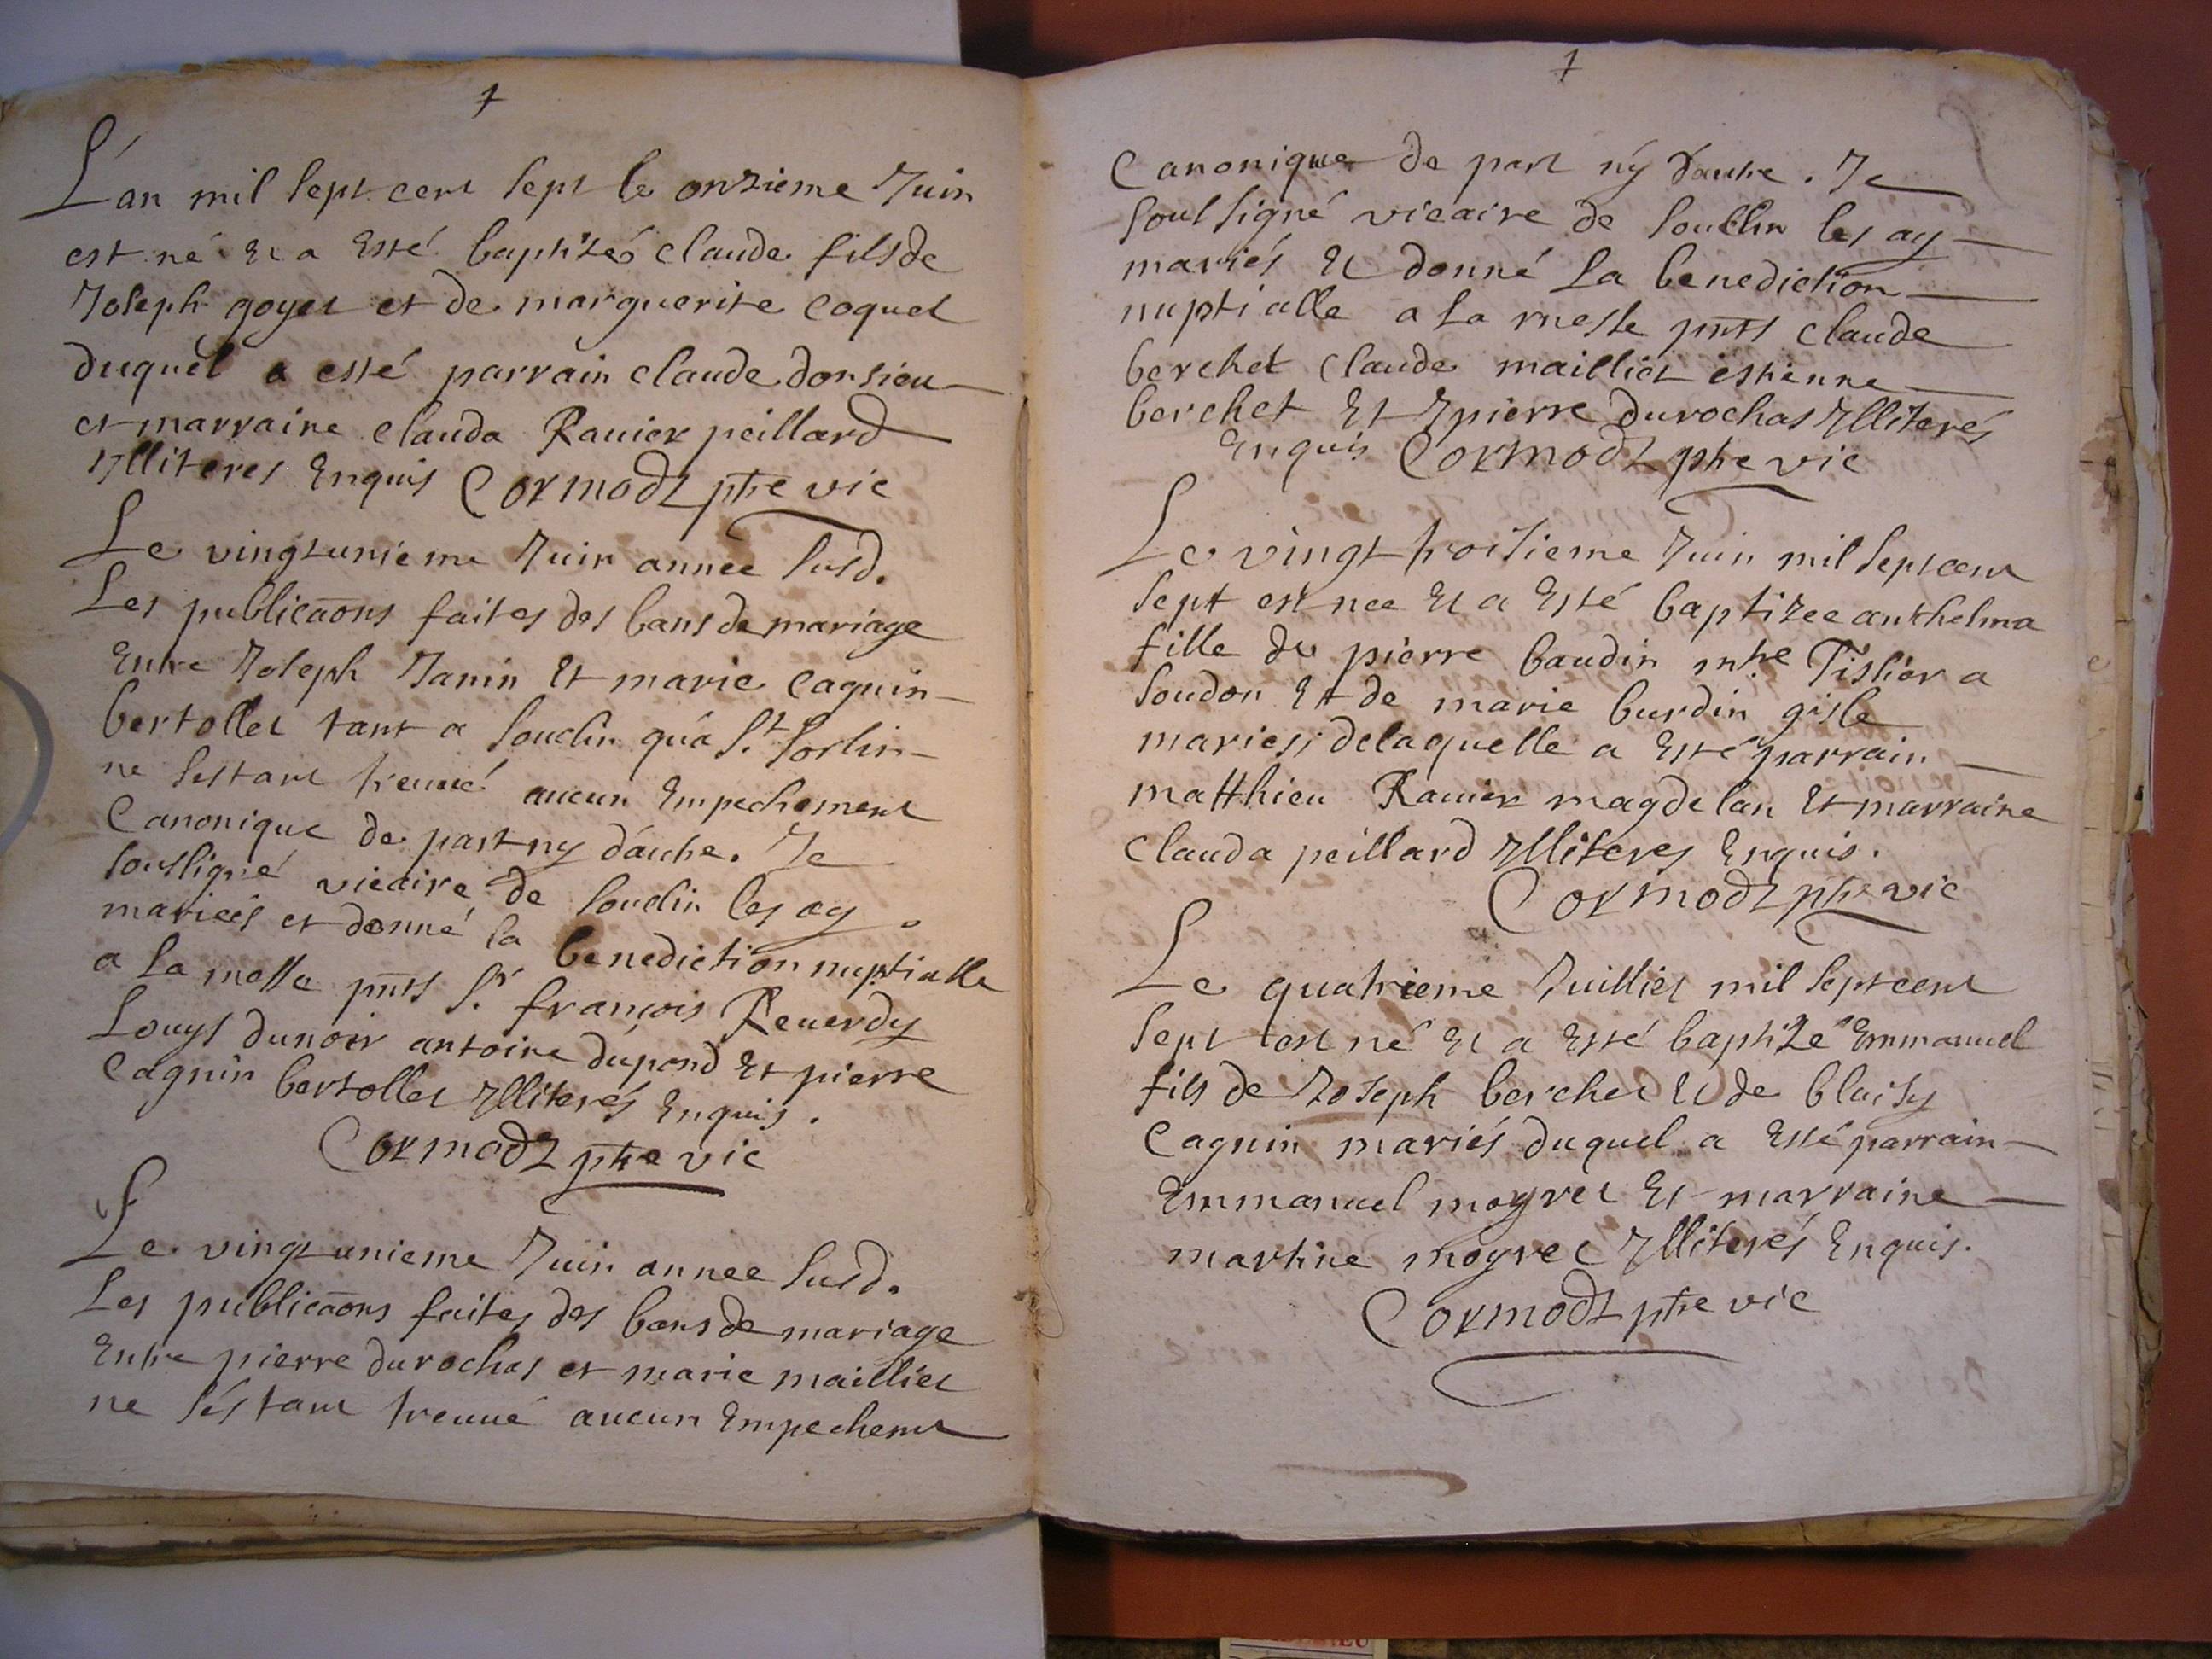 L'an mil sept cent sept le onzieme Juin
est né et a esté baptizé claude fils de
Joseph goyet et de marguerite coquet
duquel a esté parrain claude donsieu
et marraine clauda Ravier peillard
Illiteres Enquis Cormodz ptre vic
Le vingtunieme Juin année susd.
Les publicaons faites des bans de mariage
Entre Joseph Janin Et marie caguin
bertollet tant a souclin qu'a St. Sorlin
ne s'estant treuvé aucun Empechement
Canonique de part ny d'autre. Je
soussigné vicaire de souclin les ay
mariés et donné la benediction nuptialle
a la messe pnts Sr. françois Reverdy
Louys dunoir antoine dupond Et pierre
Caguin bertollet Illiterés Enquis.
Cormodz ptre vic
Le vingtunieme Juin annee susd.
Les publicaons faites des bans de mariage
Entre pierre durochas et marie mailliet
ne s'éstant treuvé aucun Empechemt
Canonique de part ny d'autre. Je
soussigné vicaire de souclin les ay
mariés Et donné La benediction
nuptialle a La messe pnts claude
berchet claude mailliet estienne
berchet Et pierre durochas Illiterés
Enquis Cormodz ptre vic
Le vingt troisieme Juin mil sept cent
sept est nee Et a Esté baptizee anthelma
fille de pierre baudin mtre Tissier a
soudon Et de marie burdin gisle
mariés; de laquelle a Esté parrain
matthieu Ravier magdelan Et marraine
Clauda peillard Illiteres Enquis.
Cormodz ptre vic
Le quatrieme Juilliet mil sept cent
sept est né Et a Esté baptizé Emmanuel
fils de Joseph berchet Et de blaisy
Caguin mariés duquel a Esté parrain
Emmanuel moyret Et marraine
martine moyret Illiterés Enquis.
Cormodz ptre vic